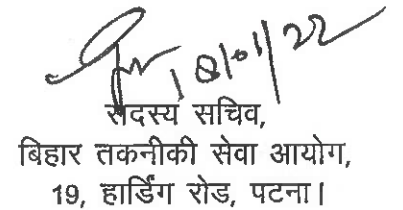 18/01/22
सदस्य सचिव,
बिहार तकनीकी सेवा आयोग,
19, हार्डिंग रोड, पटना।